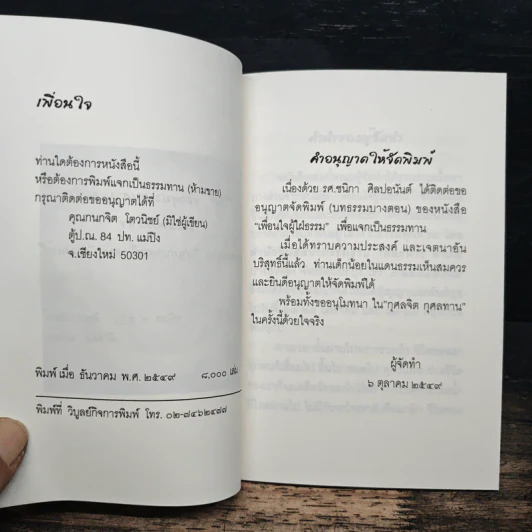 เพื่อนใจ
ท่านใดต้องการหนังสือนี้
หรือต้องการพิมพ์แจกเป็นธรรมทาน (ห้ามขาย)
กรุณาติดต่อขออนุญาตได้ที่
คุณกนกจิต โตวนิชย์ (มิใช่ผู้เขียน)
ตู้ป.ณ. 84 ปท. แม่ปิง
จ.เชียงใหม่ 50301
พิมพ์ เมื่อ ธันวาคม พ.ศ. ๒๕๔๙ ๘,๐๐๐ เล่ม
พิมพ์ที่ วิบูลย์กิจการพิมพ์ โทร. ๐๒-๗๔๖๒๔๗๗
คำอนุญาตให้จัดพิมพ์
เนื่องด้วย รศ.ชนิกา ศิลปอนันต์ ได้ติดต่อขอ
อนุญาตจัดพิมพ์ (บทธรรมบางตอน) ของหนังสือ
"เพื่อนใจผู้ใฝ่ธรรม" เพื่อแจกเป็นธรรมทาน
เมื่อได้ทราบความประสงค์ และเจตนาอัน
บริสุทธิ์นี้แล้ว ท่านเด็กน้อยในแดนธรรมเห็นสมควร
และยินดีอนุญาตให้จัดพิมพ์ได้
พร้อมทั้งขออนุโมทนา ใน"กุศลจิต กุศลทาน"
ในครั้งนี้ด้วยใจจริง
ผู้จัดทำ
๖ ตุลาคม ๒๕๔๙